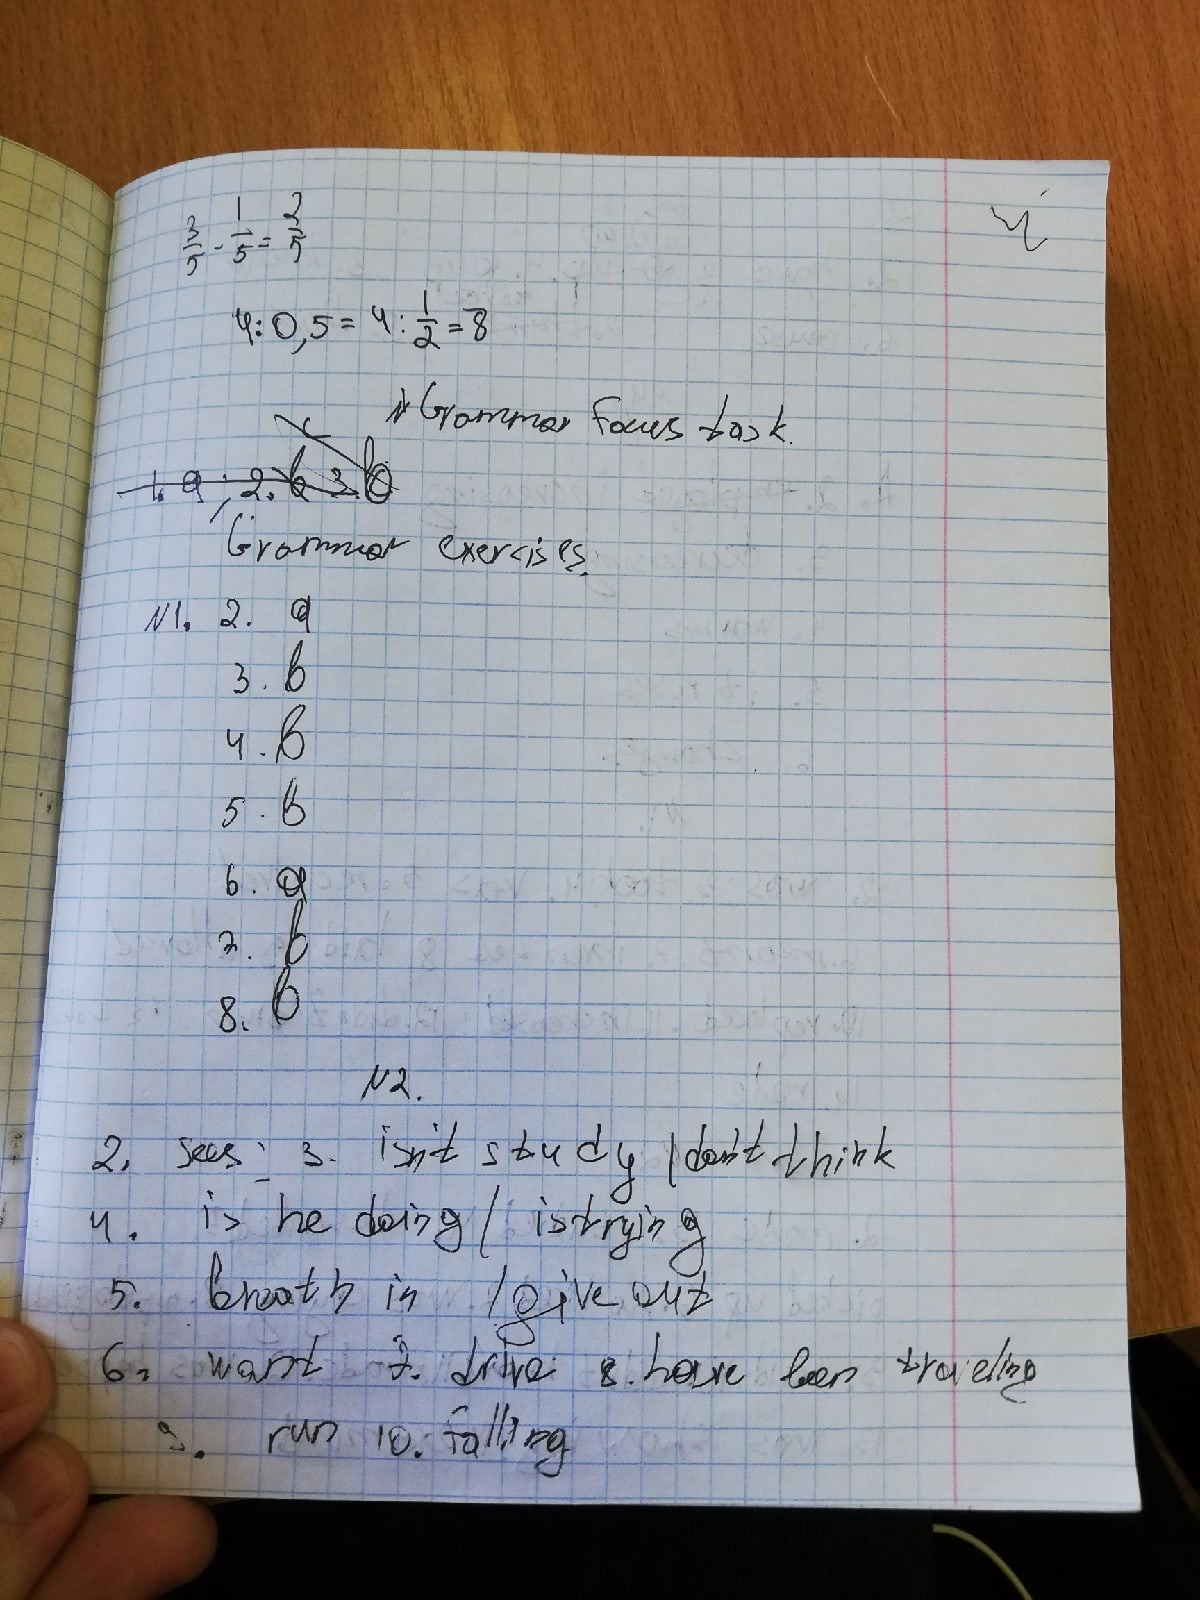 3/5 - 1/5 = 2/5
4
4:0,5 = 4 : 1/2 = 8
Grammar focus task.
1. a ; 2. b 3. b
Grammar exercises.
N1. 2. a
3. b
4. b
5. b
6. a
7. b
8. b
N2.
2. sees; 3. isn't study / don't think
4. is he doing / is trying
5. breath in / give out
6. want 7. drive 8. have been traveling
9. run 10. falling